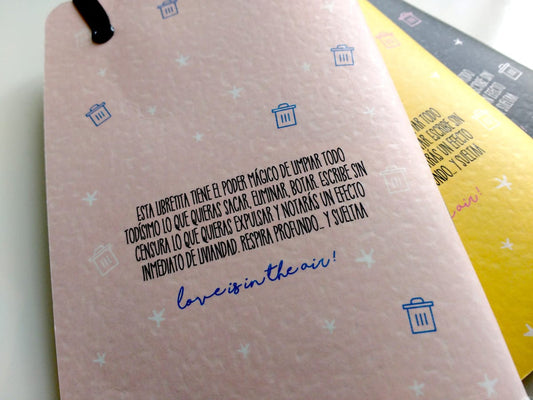 ESTA LIBRETITA TIENE EL PODER MÁGICO DE LIMPIAR TODO
TODÍSIMO LO QUE QUIERAS SACAR, ELIMINAR, BOTAR. ESCRIBE SIN
CENSURA LO QUE QUIERAS EXPULSAR Y NOTARÁS UN EFECTO
INMEDIATO DE LIVIANDAD. RESPIRA PROFUNDO... Y SUELTAA
love is in the air!
TODO
ESCRIBE SIN
UN EFECTO
Y SUELTAA
air!
SIN
EFECTO